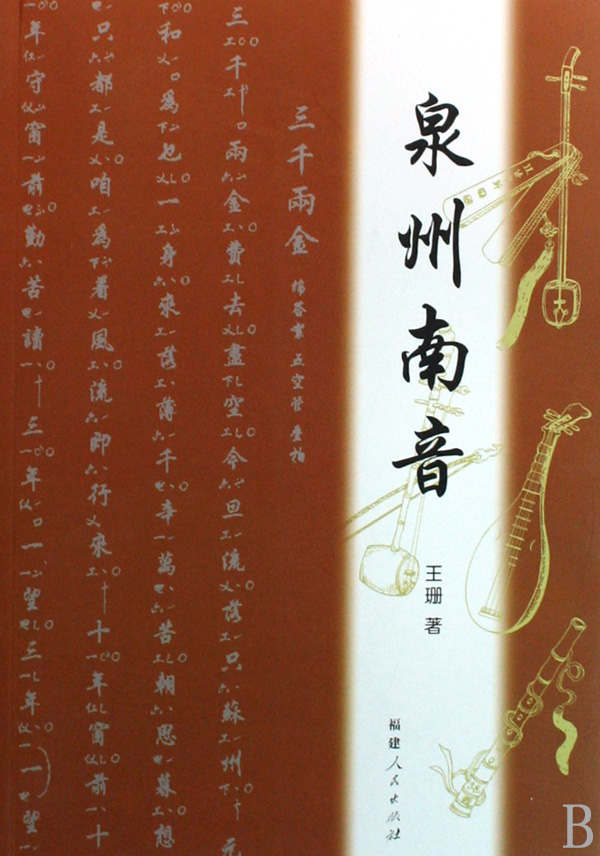 泉州南音
王珊 著
福建人民出版社
三千兩金 五空管 疊拍
三千兩金費去盡空今旦流落只蘇州
和為乜一身來落薄千辛萬苦朝思暮想
只都是咱為着風流即行來十年窗前十
年守窗前勤苦讀三年一望三年一望
B